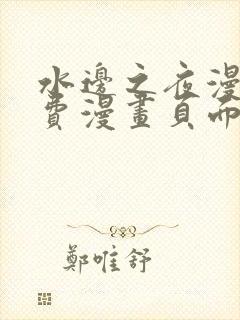 水邊之夜漫
費漫畫頁而
鄭唯舒